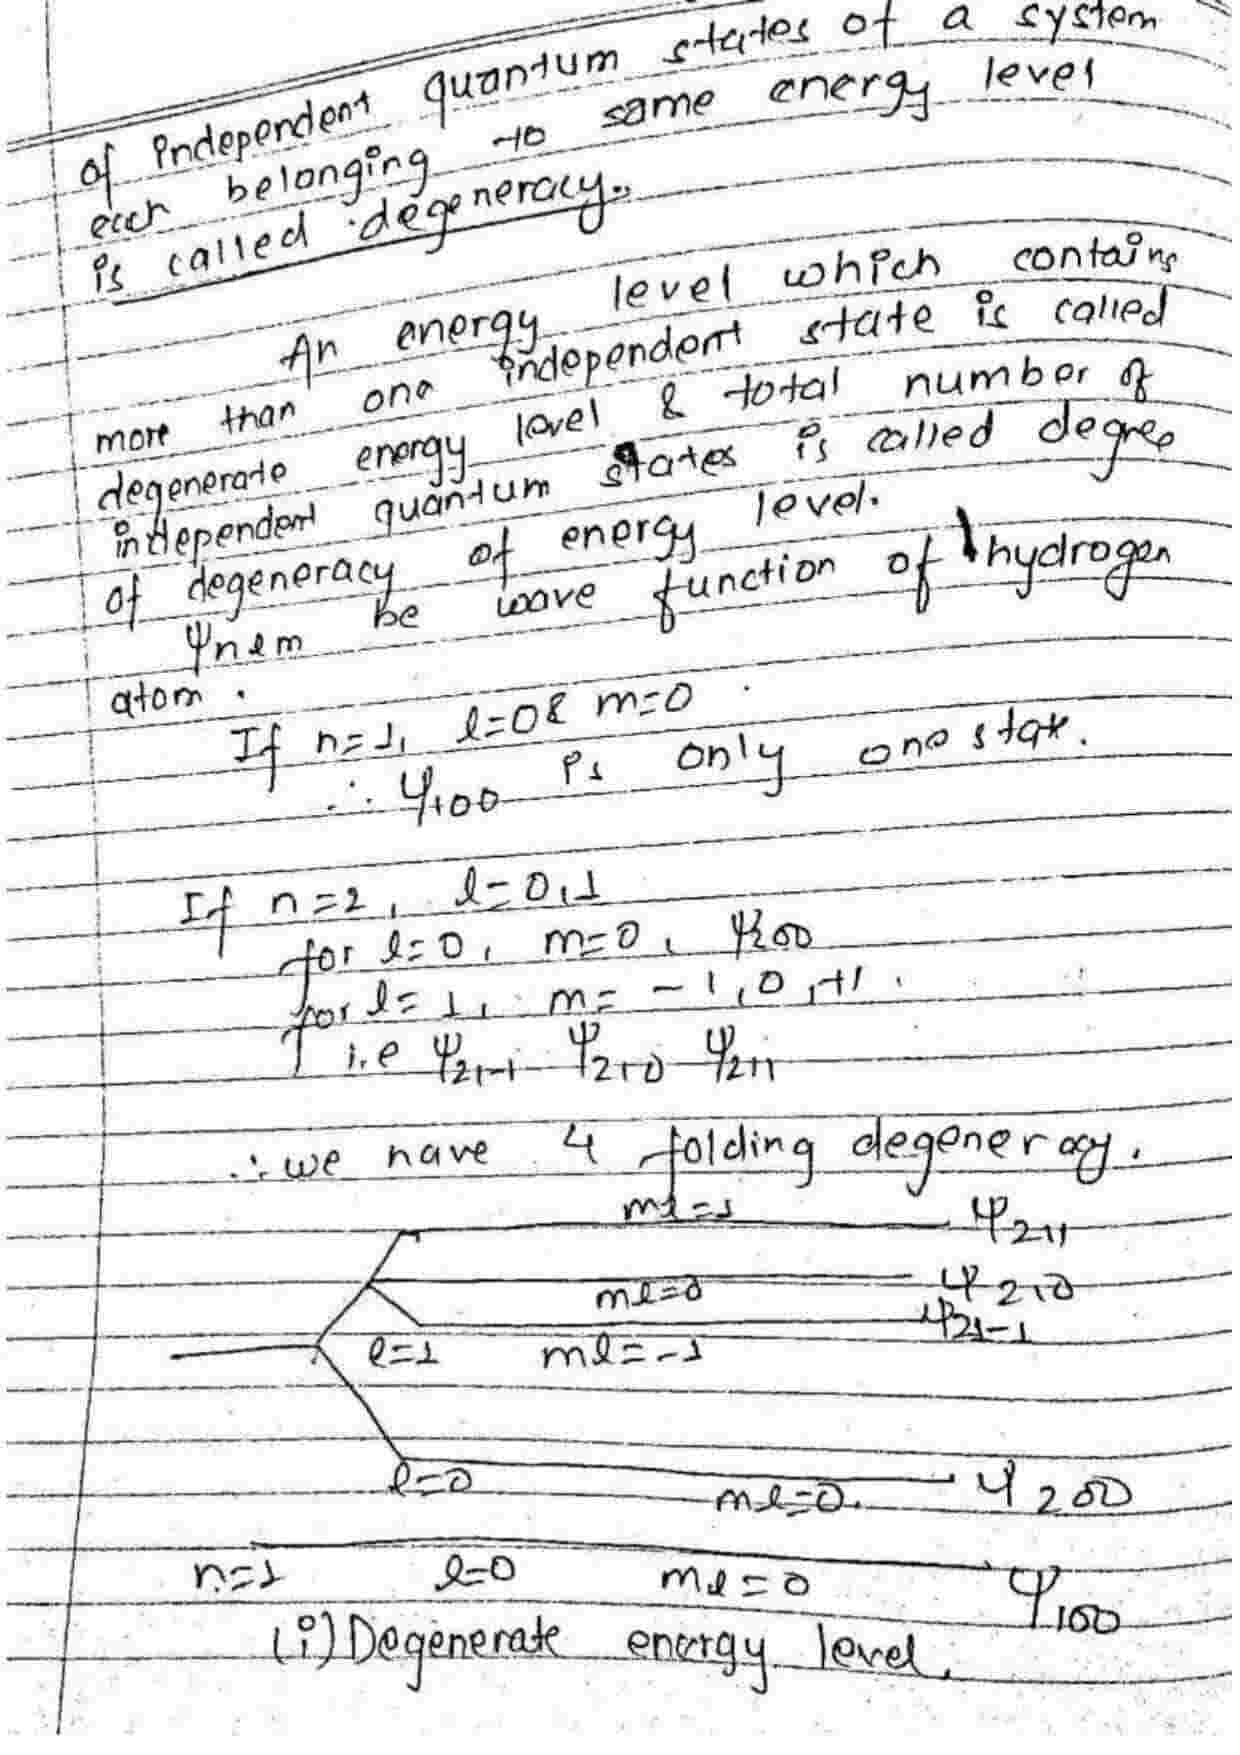 of independent quantum states of a system
each belonging to same energy level
is called degeneracy.
An energy level which contains
more than one independent state is called
degenerate energy level & total number of
independent quantum states is called degree
of degeneracy of energy level.
ψnlm be wave function of hydrogen
atom.
If n=1, l=0 & m=0
∴ ψ100 is only one state.
If n=2, l=0,1
for l=0, m=0, ψ200
for l=1, m= -1,0,+1.
i.e ψ21-1 ψ210 ψ211
∴ we have 4 folding degeneracy.
ml=1 ψ211
ml=0 ψ210
l=1 ml=-1 ψ21-1
l=0 ml=0. ψ200
n=1 l=0 ml=0 ψ100
(i) Degenerate energy level.